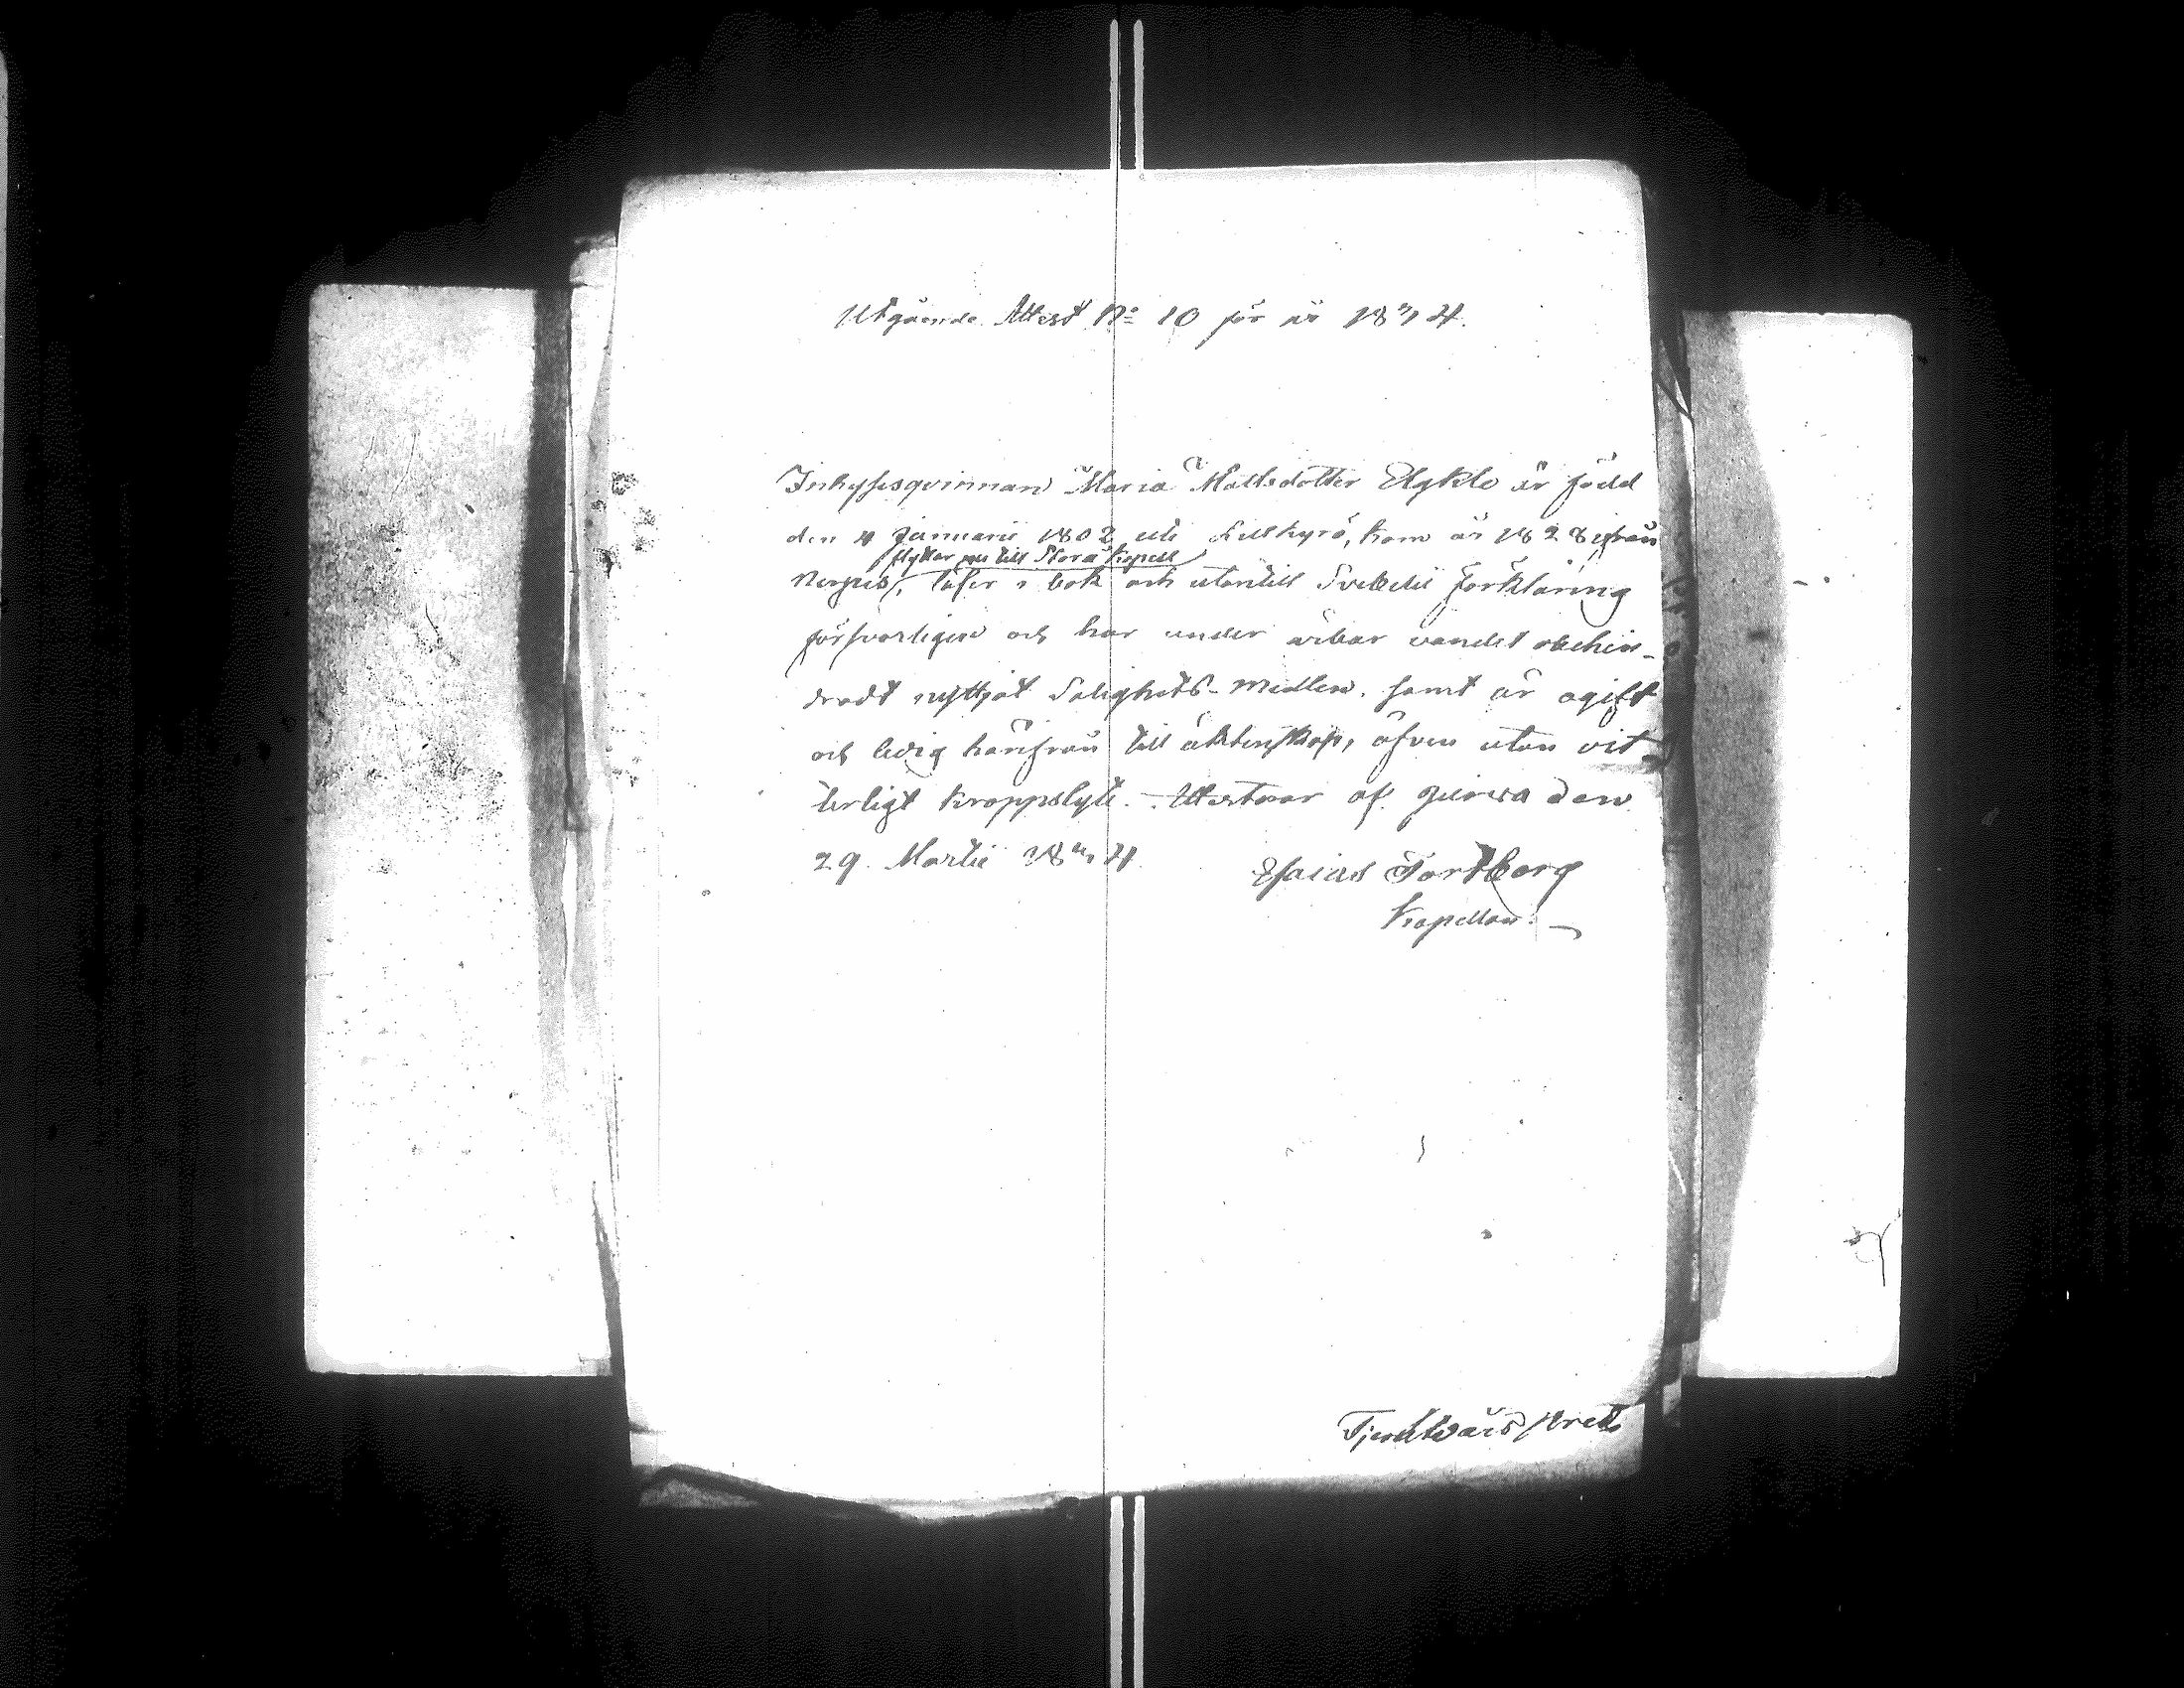 Utgående Attest No 10 för år 1874.
Inhysesqvinnan Maria Mattsdotter Elgklo är född
den 4 Januarii 1802 uti Lillkyro, kom år 1828 ifrån
flyttar nu till Storå Kapell
läser i bok och utantill Svebelii förklaring
försvarligen och har under ärbar vandel obehin-
dradt nyttjat Salighets-Medlen, samt är ogift
och ledig härifrån till äktenskap, äfven utan vit
terligt kroppslyte. Attesteras af den
29 Martii 1874. Esaias Fortberg
Kapellan.